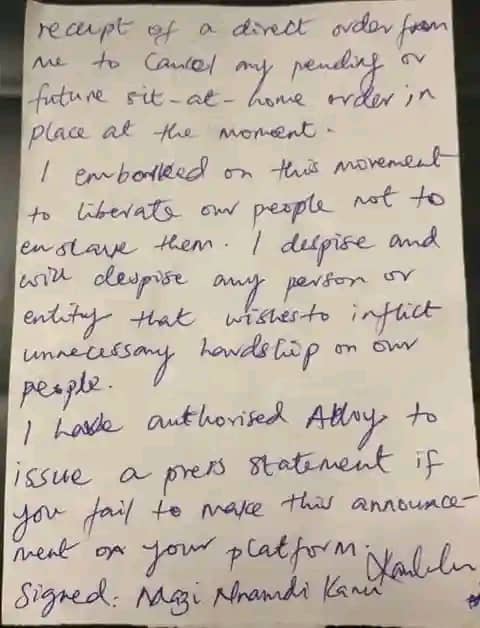 receipt of a direct order from
me to Cancel my pending or
future sit-at-home order in
place at the moment.
I embarked on this movement
to liberate our people not to
enslave them. I despise and
will despise any person or
entity that wishes to inflict
unnecessary hardship on our
people.
I have authorised Alloy to
issue a press statement if
you fail to make this announce-
ment on your platform.
Signed: Mazi Nnamdi Kanu